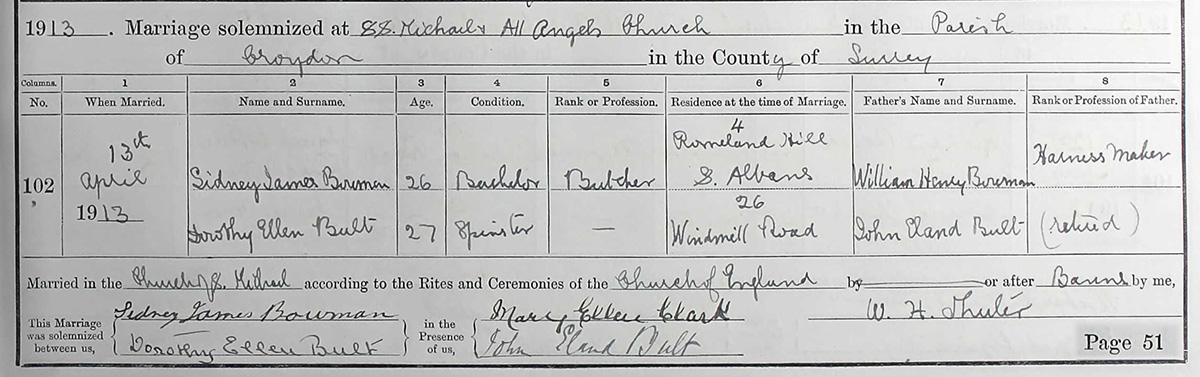 1913. Marriage solemnized at SS. Michael & All Angels Church in the Parish
of Croydon in the County of Surrey
Columns. 1 2 3 4 5 6 7 8
No. When Married. Name and Surname. Age. Condition. Rank or Profession. Residence at the time of Marriage. Father's Name and Surname. Rank or Profession of Father.
102 13th April 1913
Sidney James Bowman 26 Bachelor Butcher 4 Romeland Hill S. Albans William Henry Bowman Harness Maker
Dorothy Ellen Bult 27 Spinster — 26 Windmill Road John Eland Bult (retired)
Married in the Church of S. Michael according to the Rites and Ceremonies of the Church of England by or after Banns by me,
This Marriage was solemnized between us, Sidney James Bowman in the Presence of us, Mary Ellen Clark W. H.
Dorothy Ellen Bult John Eland Bult
Page 51